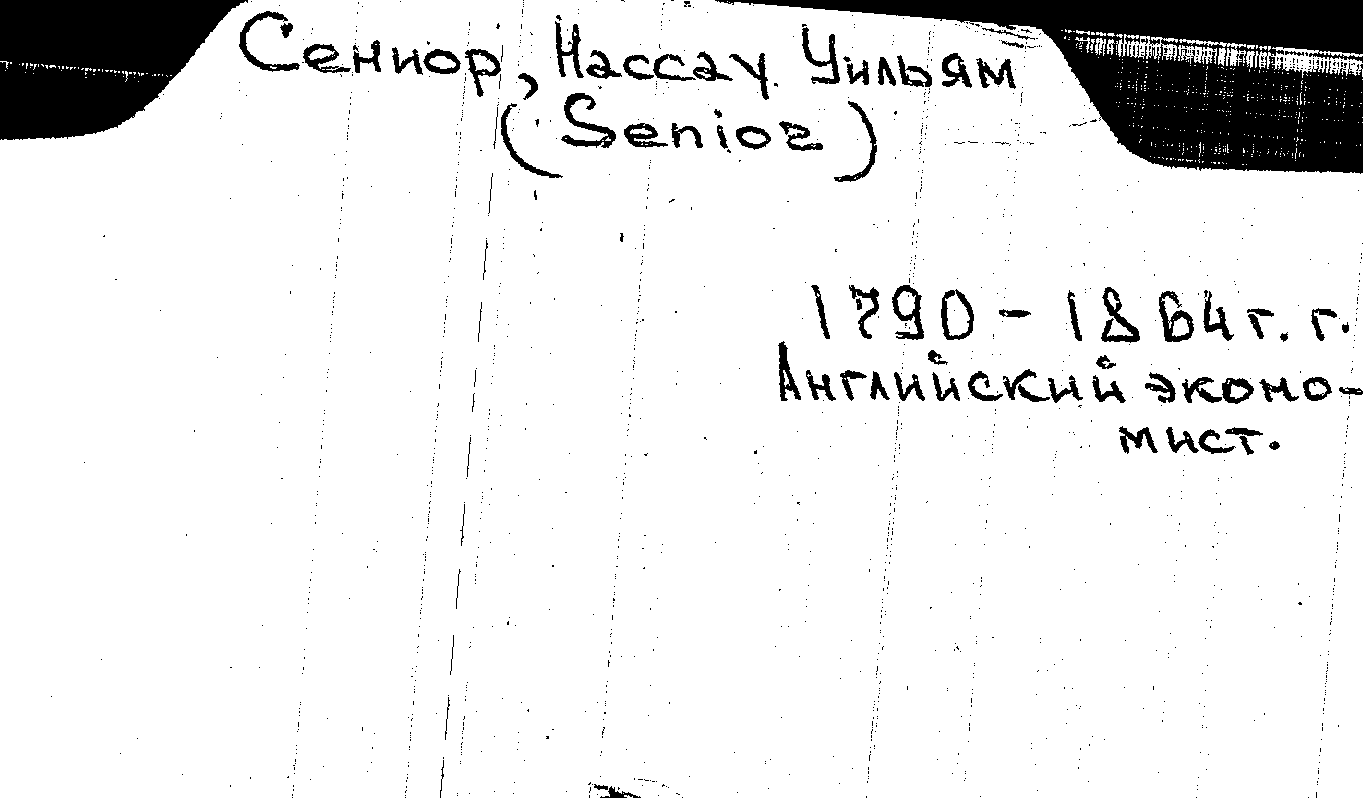 Сениор, Нассау Уильям
(Senior)
1790 - 1864 г. г.
Английский эконо-
мист.